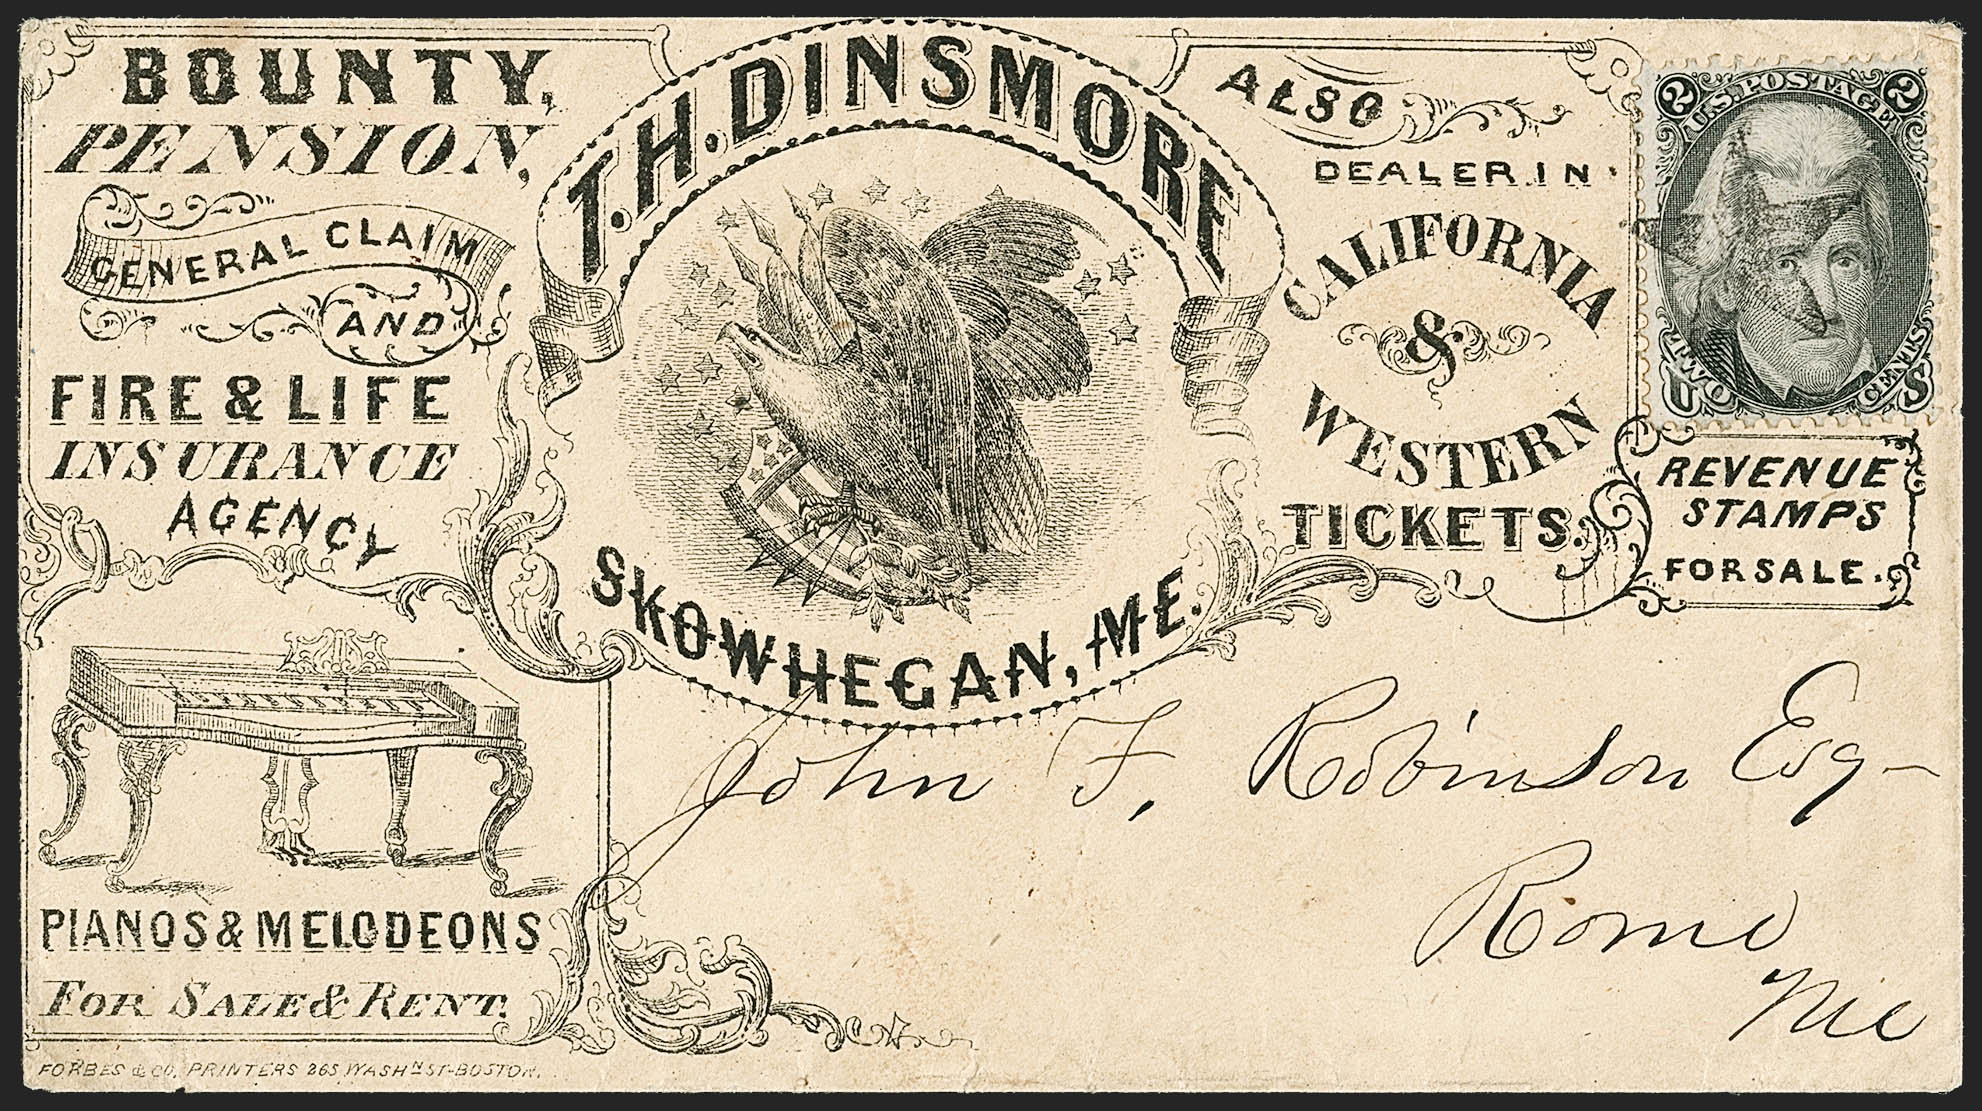 BOUNTY,
PENSION,
GENERAL CLAIM
AND
FIRE & LIFE
INSURANCE
AGENCY
T. H. DINSMORE
SKOWHEGAN, ME.
ALSO
DEALER IN
CALIFORNIA
&
WESTERN
TICKETS.
2 U.S. POSTAGE 2
U TWO CENTS S
REVENUE
STAMPS
FOR SALE.
PIANOS & MELODEONS
FOR SALE & RENT.
FORBES & CO. PRINTERS 265 WASHN ST-BOSTON.
John F. Robinson Esq-
Rome
Me